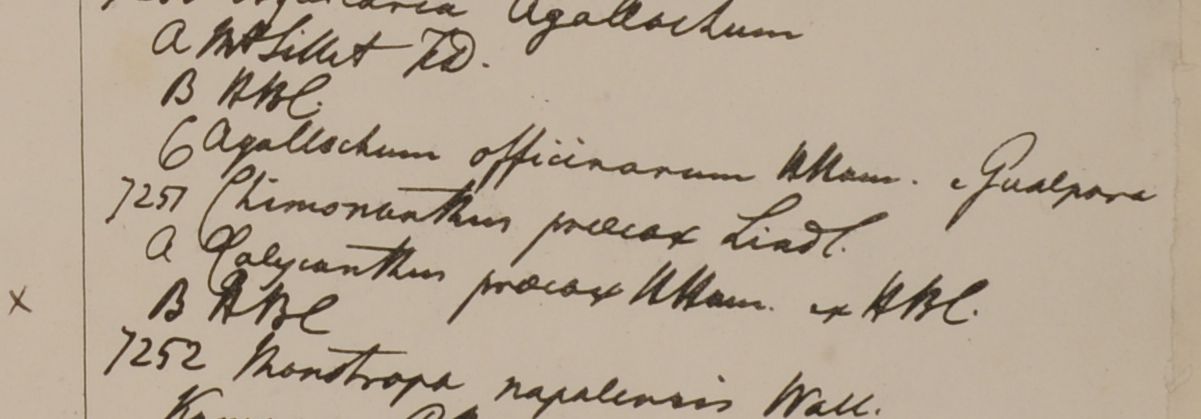 7250 Aquilaria Agallochum
A Mt Sillet F.D.
B HBC.
C Agallochum officinarum HHam. e Gualpara
7251 Chimonanthus præcox Lindl.
A Calycanthus præcox HHam. ex HBC.
x B HBC
7252 Monotropa napalensis Wall.